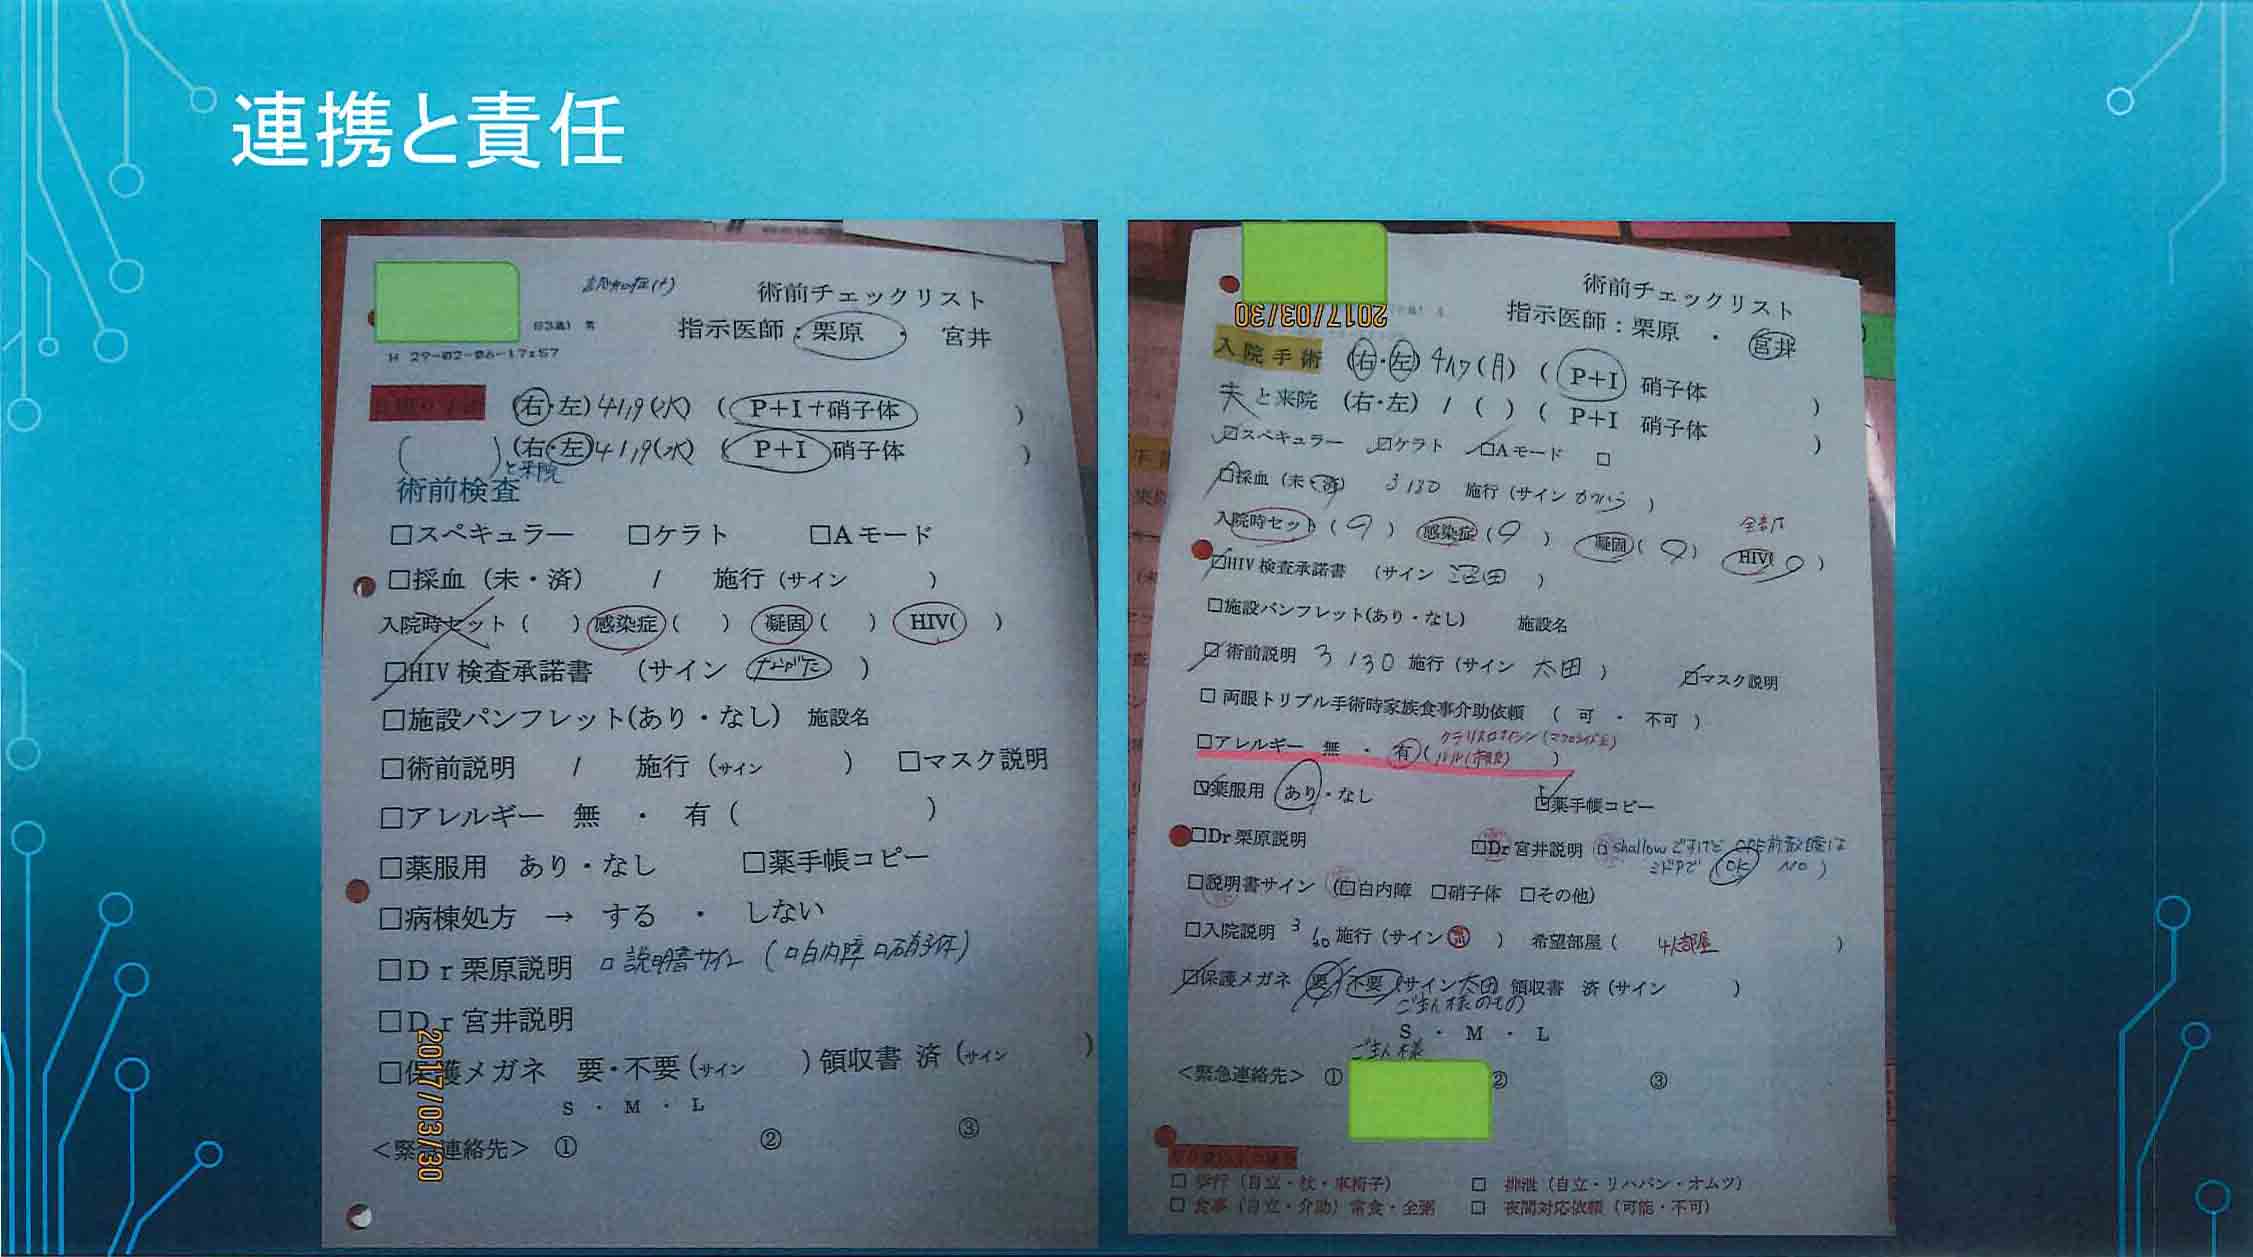 連携と責任
認知症(+)
術前チェックリスト
83歳 男
指示医師：栗原 ・ 宮井
H 29-02-06-17:57
(右・左) 4/19(水) ( P+I+硝子体 )
( )と来院 (右・左) 4/19(水) ( P+I 硝子体 )
術前検査
□スペキュラー □ケラト □Aモード
□採血 (未・済) / 施行 (サイン )
入院時セット ( ) 感染症 ( ) 凝固 ( ) HIV( )
□HIV 検査承諾書 (サイン )
□施設パンフレット(あり・なし) 施設名
□術前説明 / 施行 (サイン ) □マスク説明
□アレルギー 無 ・ 有 ( )
□薬服用 あり・なし □薬手帳コピー
□病棟処方 → する ・ しない
□Ｄｒ栗原説明 □説明書サイン (□白内障 □硝子体)
□Ｄｒ宮井説明
□保護メガネ 要・不要 (サイン ) 領収書 済 (サイン )
S ・ M ・ L
<緊急連絡先> ① ② ③
2017/03/30
術前チェックリスト
2017/03/30
指示医師：栗原 ・ 宮井
入院手術 (右・左) 4/17(月) ( P+I 硝子体 )
夫と来院 (右・左) / ( ) ( P+I 硝子体 )
□スペキュラー □ケラト □Aモード □
□採血 (未・済) 3/30 施行 (サイン )
入院時セット ( ) 感染症 ( ) 凝固 ( ) HIV( )
□HIV 検査承諾書 (サイン 沼田 )
□施設パンフレット(あり・なし) 施設名
□術前説明 3/30 施行 (サイン 太田 ) □マスク説明
□両眼トリプル手術時家族食事介助依頼 ( 可 ・ 不可 )
□アレルギー 無 ・ 有 ( クラリスロマイシン )
□薬服用 あり・なし □薬手帳コピー
□Dr 栗原説明 □Dr 宮井説明 shallow ですけど
ミドPで OK NO )
□説明書サイン (□白内障 □硝子体 □その他)
□入院説明 3/30 施行 (サイン ) 希望部屋 ( 4人部屋 )
□保護メガネ 要 不要 (サイン 太田 領収書 済 (サイン )
ご主人様のもの
S ・ M ・ L
ご主人様
<緊急連絡先> ① ② ③
□ 歩行 (自立・杖・車椅子) □ 排泄 (自立・リハパン・オムツ)
□ 食事 (自立・介助) 常食・全粥 □ 夜間対応依頼 (可能・不可)